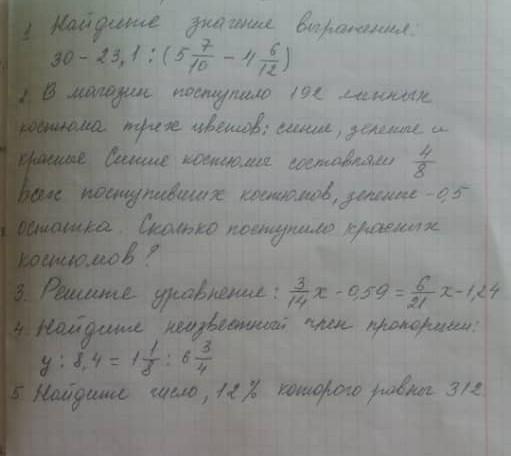 1. Найдите значение выражения:
30 - 23,1 : (5 7/10 - 4 6/12)
2. В магазин поступило 192 костюма трех цветов: синие, зеленые и
красные Синие костюмы составляли 4/8
всех поступивших костюмов, зеленые - 0,5
остатка. Сколько поступило красных
костюмов?
3. Решите уравнение: 3/14 x - 0,59 = 6/21 x - 1,24
4. Найдите неизвестный член пропорции:
y : 8,4 = 1 1/8 : 6 3/4
5. Найдите число, 12% которого равны 312.